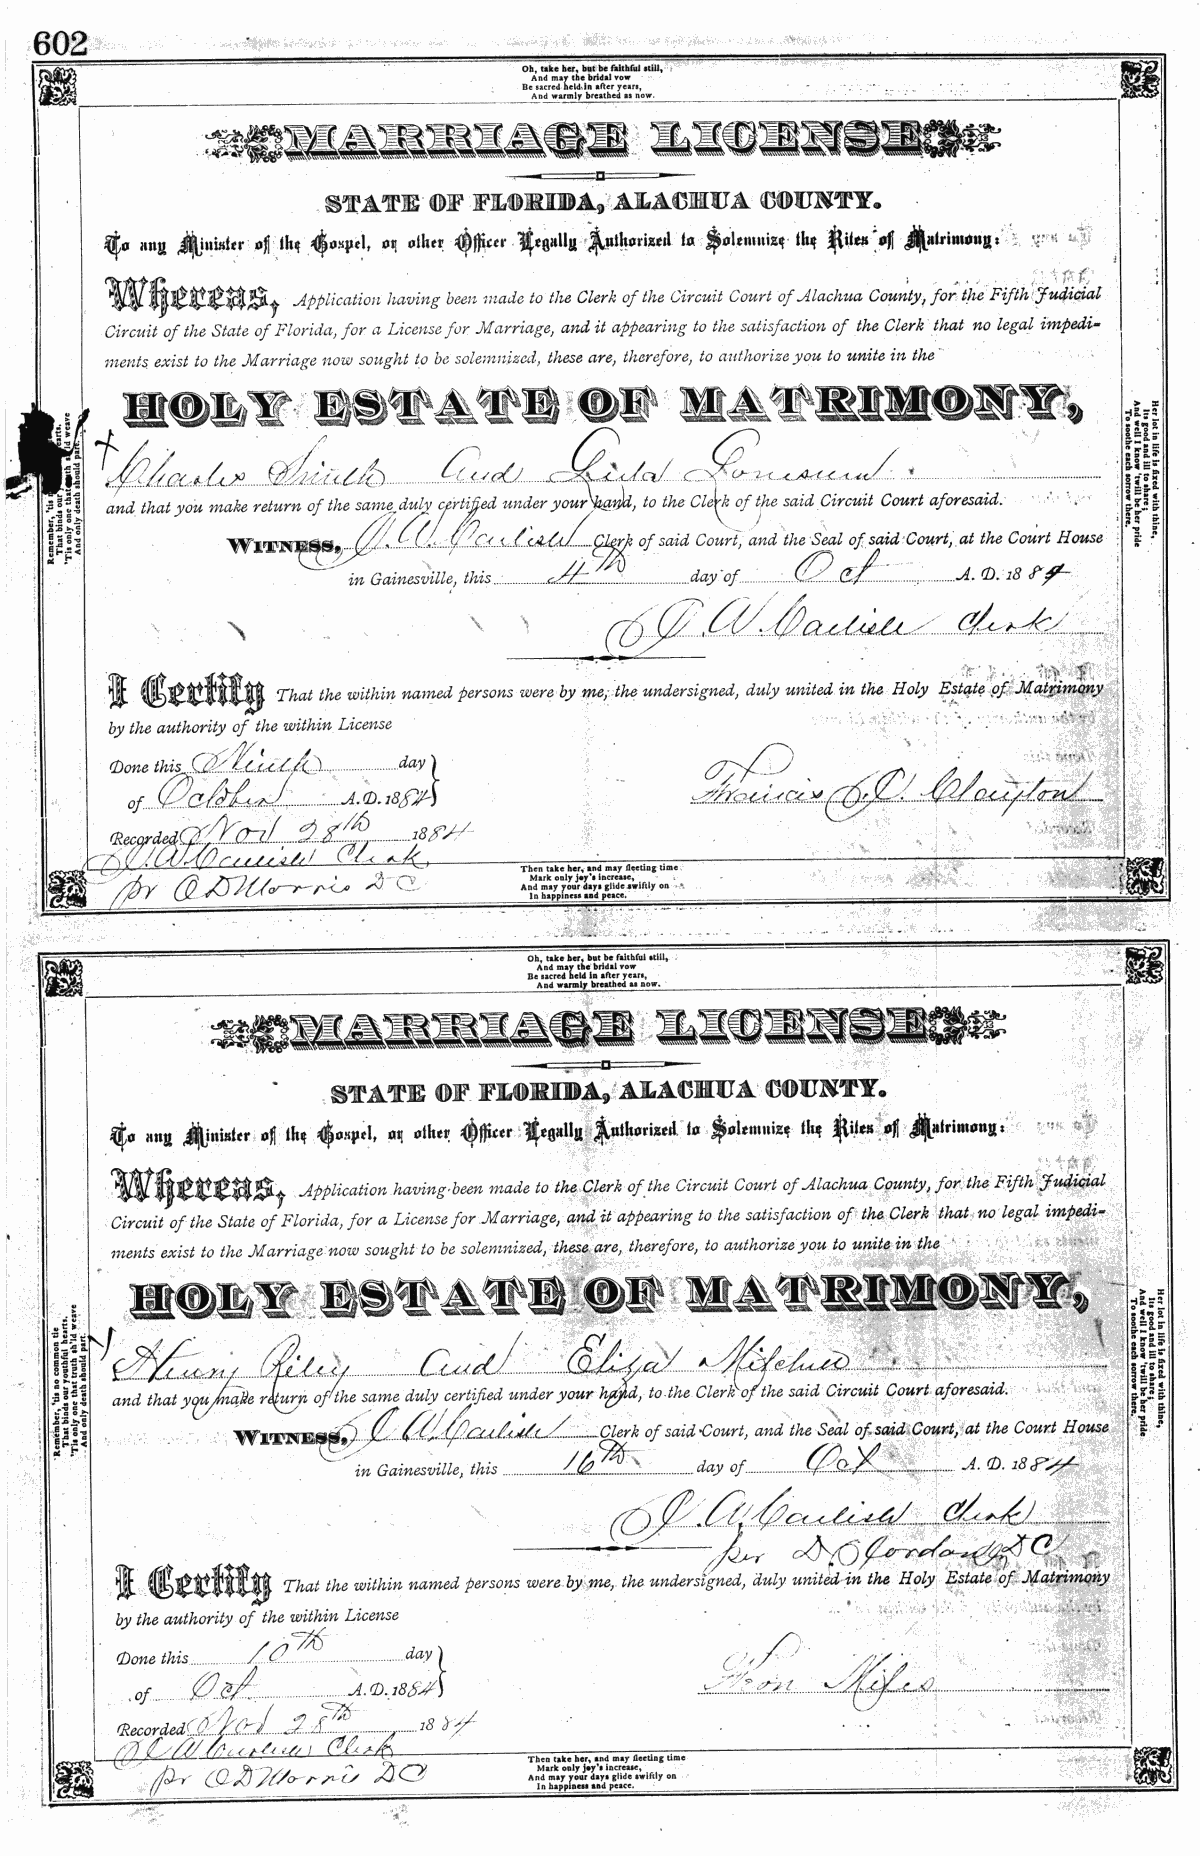 602
Oh, take her, but be faithful still,
And may the bridal vow
Be sacred held in after years,
And warmly breathed as now.
MARRIAGE LICENSE
STATE OF FLORIDA, ALACHUA COUNTY.
To any Minister of the Gospel, or other Officer Legally Authorized to Solemnize the Rites of Matrimony:
Whereas, Application having been made to the Clerk of the Circuit Court of Alachua County, for the Fifth Judicial
Circuit of the State of Florida, for a License for Marriage, and it appearing to the satisfaction of the Clerk that no legal impedi-
ments exist to the Marriage now sought to be solemnized, these are, therefore, to authorize you to unite in the
HOLY ESTATE OF MATRIMONY,
Charles Smith and
and that you make return of the same duly certified under your hand, to the Clerk of the said Circuit Court aforesaid.
WITNESS, J. A. Carlisle Clerk of said Court, and the Seal of said Court, at the Court House
in Gainesville, this 4th day of Oct A. D. 1884
J. A. Carlisle Clerk
I Certify That the within named persons were by me, the undersigned, duly united in the Holy Estate of Matrimony
by the authority of the within License
Done this Ninth day
of October A. D. 1884
Francis J. Clayton
Recorded Nov 28th 1884
J. A. Carlisle Clerk
pr O D Morris D C
Then take her, and may fleeting time
Mark only joy's increase,
And may your days glide swiftly on
In happiness and peace.
Remember, 'tis
That binds our hearts.
'Tis only one that sh'ld weave
And only death should part.
Her lot in life is fixed with thine,
Its good and ill to share;
And well I know 'twill be her pride
To soothe each sorrow there.
Oh, take her, but be faithful still,
And may the bridal vow
Be sacred held in after years,
And warmly breathed as now.
MARRIAGE LICENSE
STATE OF FLORIDA, ALACHUA COUNTY.
To any Minister of the Gospel, or other Officer Legally Authorized to Solemnize the Rites of Matrimony:
Whereas, Application having been made to the Clerk of the Circuit Court of Alachua County, for the Fifth Judicial
Circuit of the State of Florida, for a License for Marriage, and it appearing to the satisfaction of the Clerk that no legal impedi-
ments exist to the Marriage now sought to be solemnized, these are, therefore, to authorize you to unite in the
HOLY ESTATE OF MATRIMONY,
Henry Riley and Eliza Mitchell
and that you make return of the same duly certified under your hand, to the Clerk of the said Circuit Court aforesaid.
WITNESS, J. A. Carlisle Clerk of said Court, and the Seal of said Court, at the Court House
in Gainesville, this 16th day of Oct A. D. 1884
J. A. Carlisle Clerk
per Jordan DC
I Certify That the within named persons were by me, the undersigned, duly united in the Holy Estate of Matrimony
by the authority of the within License
Done this 10th day
of Oct A. D. 1884
Miles
Recorded Nov 28th 1884
J A Carlisle Clerk
pr O D Morris DC
Then take her, and may fleeting time
Mark only joy's increase,
And may your days glide swiftly on
In happiness and peace.
Remember, 'tis no common tie
That binds our youthful hearts,
'Tis only one that truth sh'ld weave
And only death should part.
Her lot in life is fixed with thine,
Its good and ill to share;
And well I know 'twill be her pride
To soothe each sorrow there.